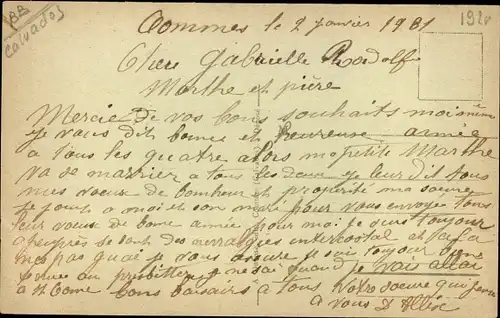 BB
Calvados
192
Commes le 2 Janvier 1931
Chere Gabrielle Rodolfe
Marthe et piere
Mercie de vos bons souhaits moi même
je vous dit bonne et heureuse année
a tous les quatre alors ma petite Marthe
va de marrier a tous les deux je leur dit tous
mes voeux de bonheur et prospérité ma soeur
se joint a moi et son mari pour vous envoyer tous
leur voeux de bonne année pour moi je suis toujour
apeuprès de sont des intercostal et sa
pas quoi je vous assure je suis toujour
je ne sai quand je vais aller
a bons baisairs a tous votre soeur qui pense
a vous D Allix